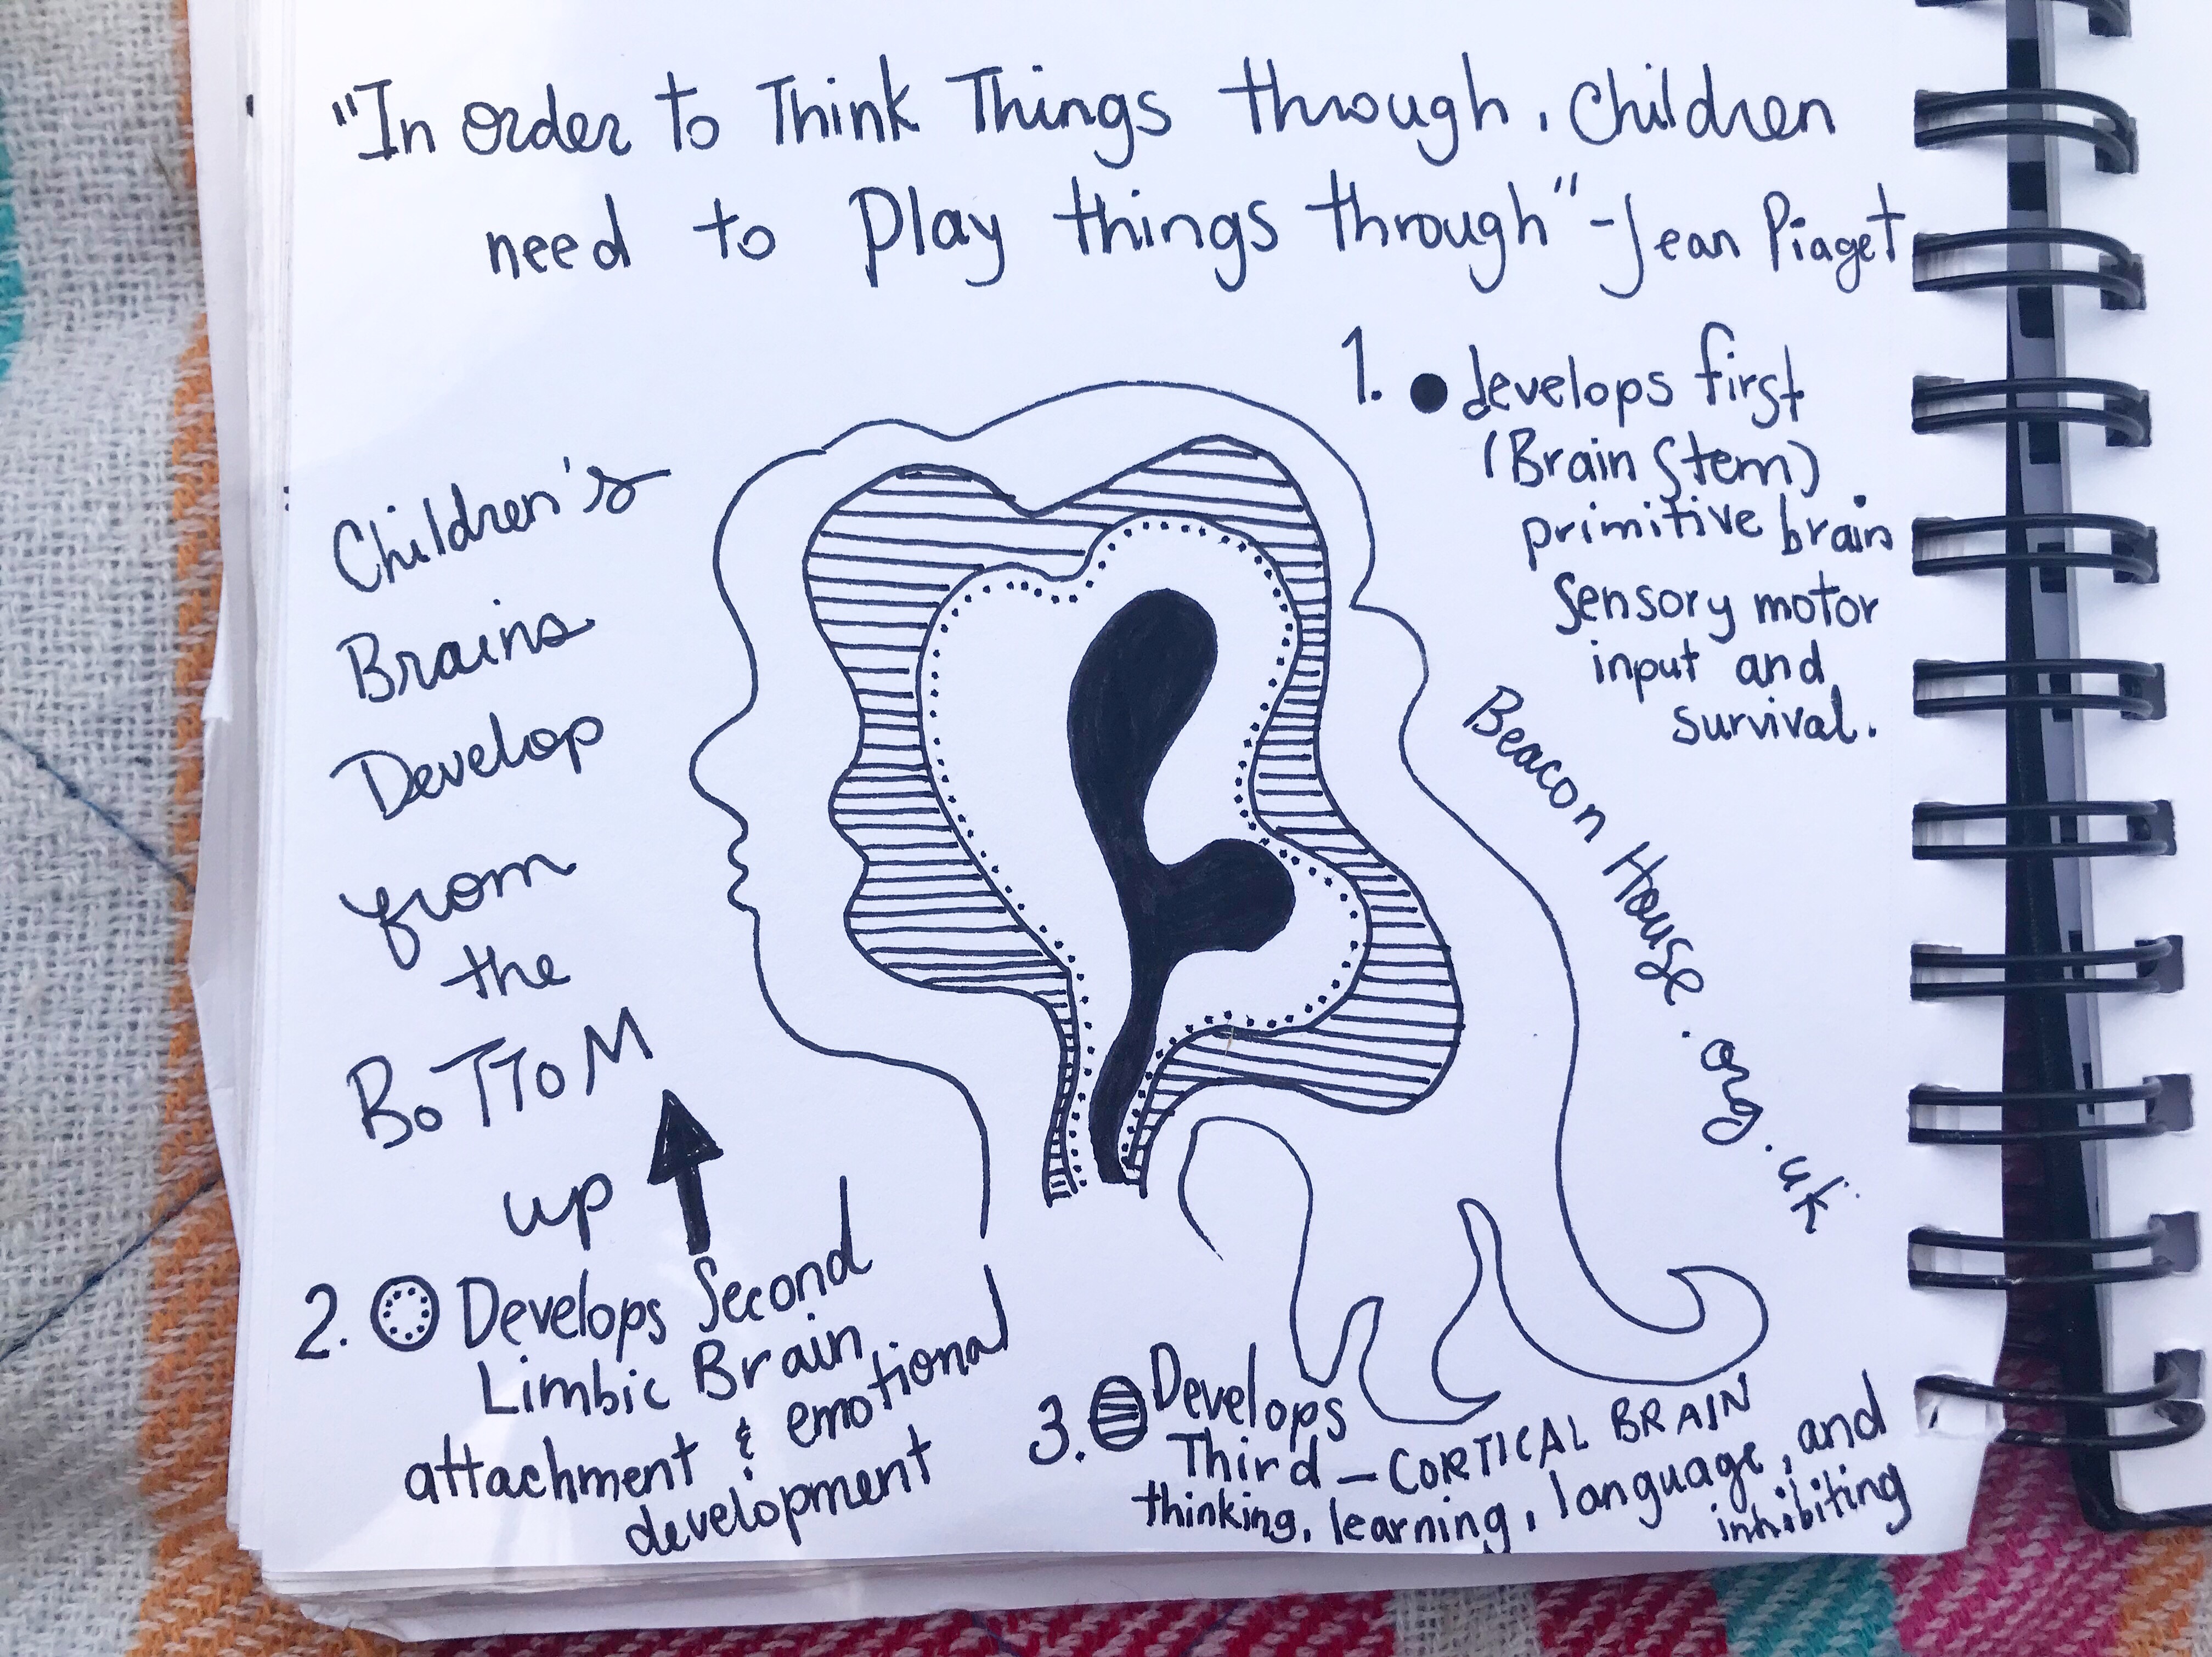 "In order to Think Things through, Children
need to Play things through" - Jean Piaget
Children's
Brains
Develop
from
the
BoTToM
up
1. develops first
(Brain Stem)
primitive brain
Sensory motor
input and
survival.
Beacon House.org.uk
2. Develops Second
Limbic Brain
attachment & emotional
development
3. Develops
Third - CORTICAL BRAIN
thinking, learning, language, and
inhibiting